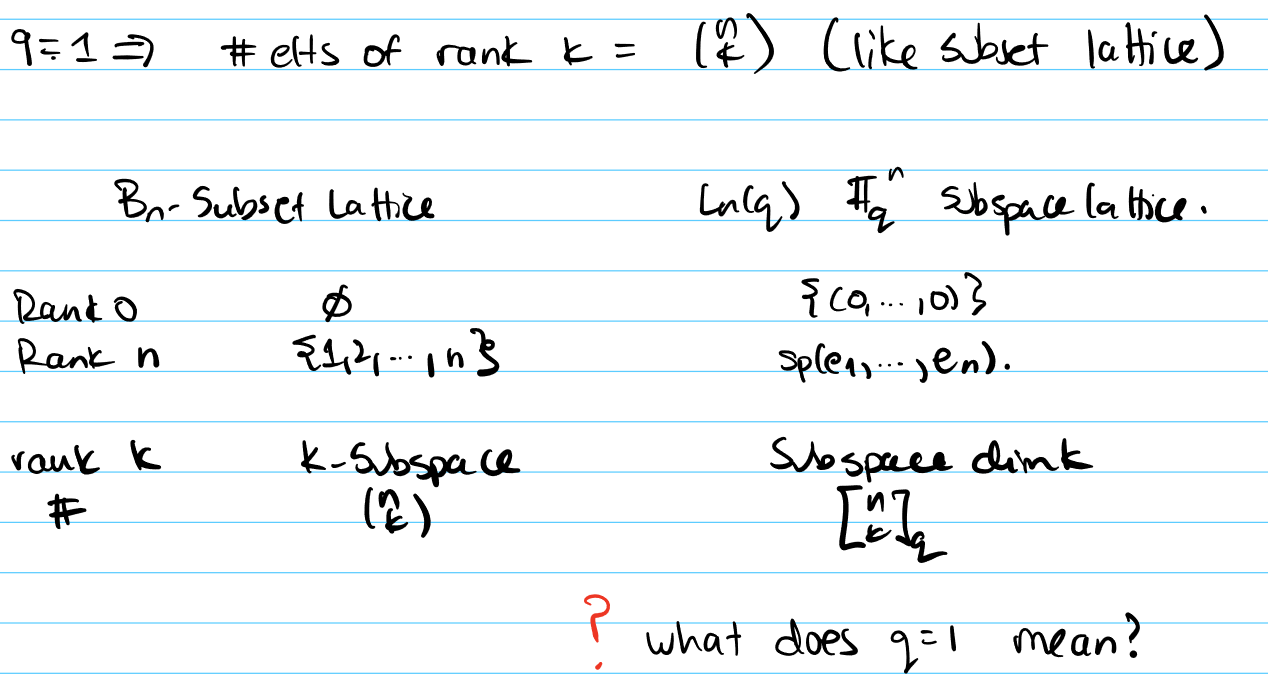 q=1 ⇒ # elts of rank k = (n k) (like subset lattice)
Bn- Subset Lattice Ln(q) 𝔽_q^n subspace lattice.
Rank 0 ∅ {(0,...,0)}
Rank n {1,2,...,n} sp(e1,...,en).
rank k k-Subspace Subspace dim k
# (n k) [n k]_q
? what does q=1 mean?